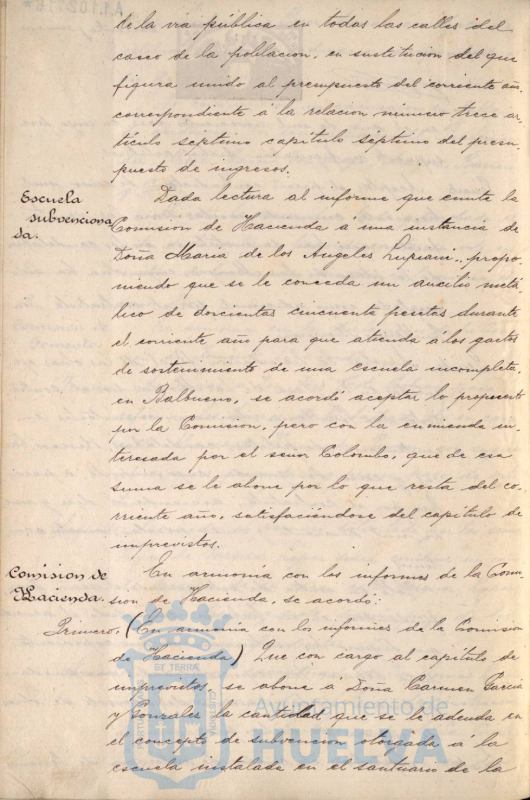 A.1.102.716
de la via pública en todas las calles del
casco de la poblacion, en sustitucion del que
figura unido al presupuesto del corriente año
correspondiente á la relacion número trece ar-
tículo séptimo capítulo séptimo del presu-
puesto de ingresos.
Escuela
subvenciona
da.
Dada lectura al informe que emite la
Comision de Hacienda á una instancia de
Doña Maria de los Angeles Lupiani, propo-
niendo que se le conceda un aucilio metá-
lico de doscientas cincuenta pesetas durante
el corriente año para que atienda á los gastos
de sostenimiento de una escuela incompleta,
en Balbueno, se acordó aceptar lo propuesto
por la Comision, pero con la enmienda in-
teresada por el señor Colombo, que de esa
suma se le abone por lo que resta del co-
rriente año, satisfaciéndose del capítulo de
imprevistos.
Comision de
Hacienda.
En armonía con los informes de la Comi-
sion de Hacienda, se acordó:
Primero. (En armonía con los informes de la Comision
de Hacienda) Que con cargo al capítulo de
imprevistos, se abone á Doña Carmen Garcia
y Gonzales la cantidad que se le adeuda en
el concepto de subvencion otorgada á la
escuela instalada en el santuario de la
ET TERRÆ
Ayuntamiento de
HUELVA